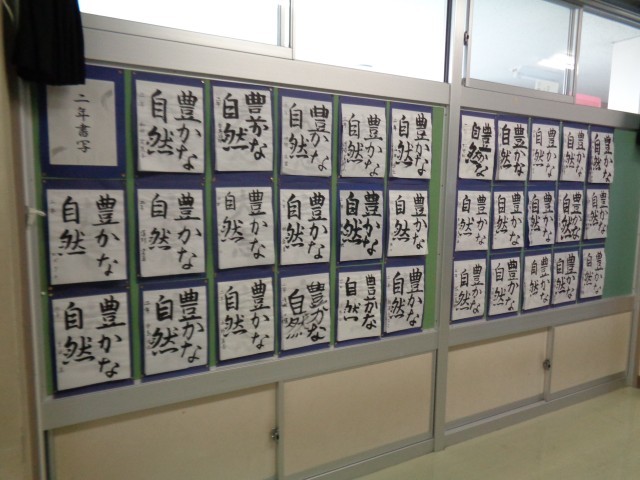 二年書写
豊かな
自然
豊かな
自然
豊かな
自然
豊かな
自然
豊かな
自然
豊かな
自然
豊かな
自然
豊かな
自然
豊かな
自然
豊かな
自然
豊かな
自然
豊かな
自然
豊かな
自然
豊かな
自然
豊かな
自然
豊かな
自然
豊かな
自然
豊かな
自然
豊かな
自然
豊かな
自然
豊かな
自然
豊かな
自然
豊かな
自然
豊かな
自然
豊かな
自然
豊かな
自然
豊かな
自然
豊かな
自然
豊かな
自然
豊かな
自然
豊かな
自然
豊かな
自然